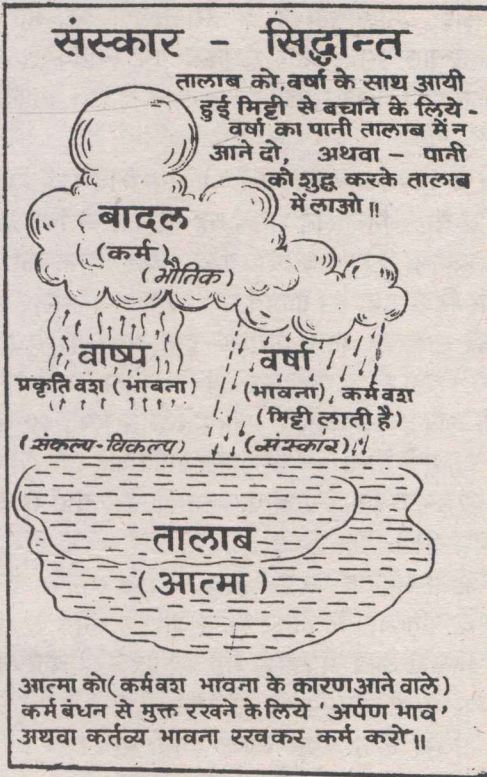 संस्कार - सिद्धान्त
तालाब को, वर्षा के साथ आयी
हुई मिट्टी से बचाने के लिये -
वर्षा का पानी तालाब में न
आने दो, अथवा - पानी
को शुद्ध करके तालाब
में लाओ॥
बादल
(कर्म)
(भौतिक)
वाष्प
प्रकृति वश (भावना)
(संकल्प-विकल्प)
वर्षा
(भावना), कर्मवश
(मिट्टी लाती है)
(संस्कार)
तालाब
(आत्मा)
आत्मा को (कर्मवश भावना के कारण आने वाले)
कर्म बंधन से मुक्त रखने के लिये 'अर्पण भाव'
अथवा कर्तव्य भावना रखकर कर्म करो॥